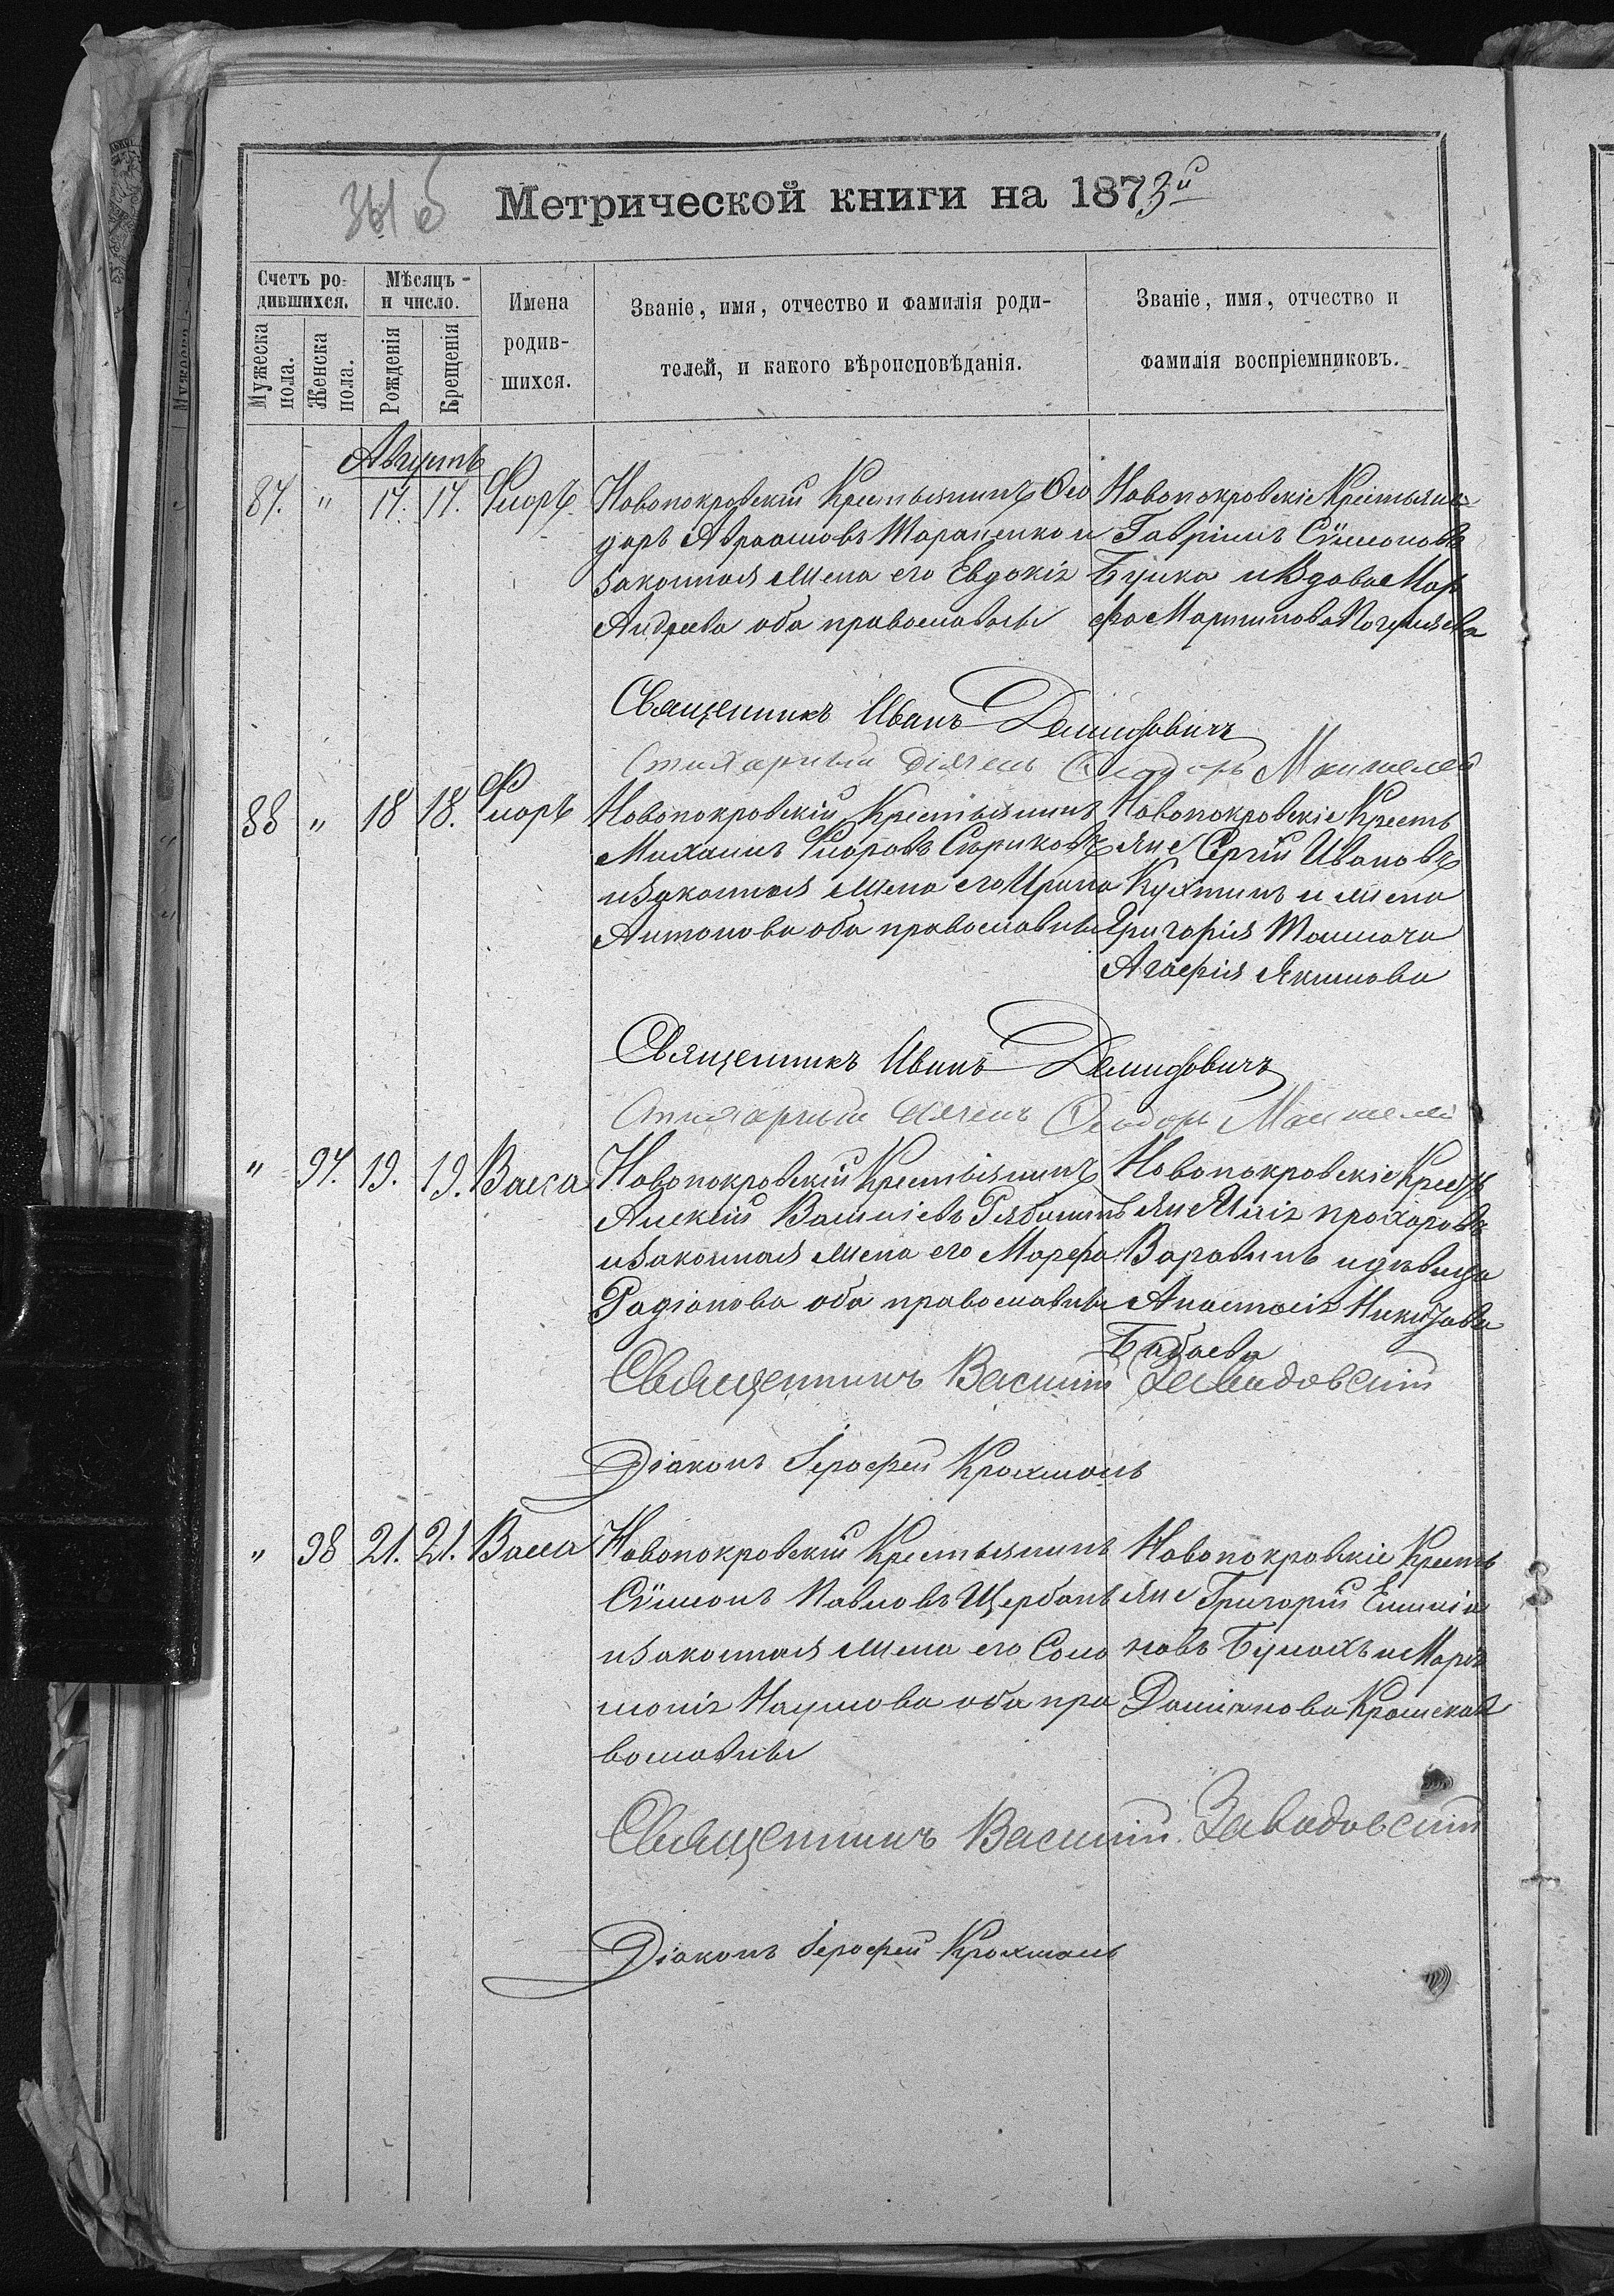 Метрической книги на 1873й
Счетъ ро-
дившихся.
Мѣсяцъ
и число.
Мужеска пола.
Женска пола.
Рожденія
Крещенія
Имена
родив-
шихся.
Званіе, имя, отчество и фамилія роди-
телей, и какого вѣроисповѣданія.
Званіе, имя, отчество и
фамилія воспріемниковъ.
Августъ
87. " 17. 17. Флоръ
Новопокровскій Крестьянинъ Ѳео
доръ Авраамовъ Тараненко и
законная жена его Евдокія
Андреева оба православны
Новопокровскіе Крестьяне
Гавріилъ Сѵмеоновъ
Буцка и Вдова Мар
фа Мартинова
Священникъ Иванъ Демидовичъ
Стихарный Дячекъ Ѳеодоръ
88 " 18 18. Флоръ
Новопокровскій Крестьянинъ
Михаилъ Флоровъ Сѣриковъ
и законная жена его Ирина
Антонова оба православны
Новопокровскіе Кресть
яне Сергій Ивановъ
Кухтинъ и жена
Григорія Толмача
Агафія Якимова
Священникъ Иванъ Демидовичъ
Стихарный Дячекъ Ѳеодоръ
" 97. 19. 19. Васса
Новопокровскій Крестьянинъ
Алексій Василіевъ Рябининъ
и законная жена его Марфа
Радіонова оба православны
Новопокровскіе Кресть
яне Илія Прохоровъ
Варавинъ и дѣвица
Анастасія Никитова
Бабаева
Священникъ Василій Завадовскій
Діаконъ Іерофей Крохмаль
" 98 21. 21. Васса
Новопокровскій Крестьянинъ
Сѵмеонъ Павловъ Щербань
и законная жена его Соло
монія Наумова оба пра
вославны
Новопокровскіе Кресть
яне Григорій Емилія
новъ Бумахъ и Марія
Даміанова
Священникъ Василій Завадовскій
Діаконъ Іерофей Крохмаль